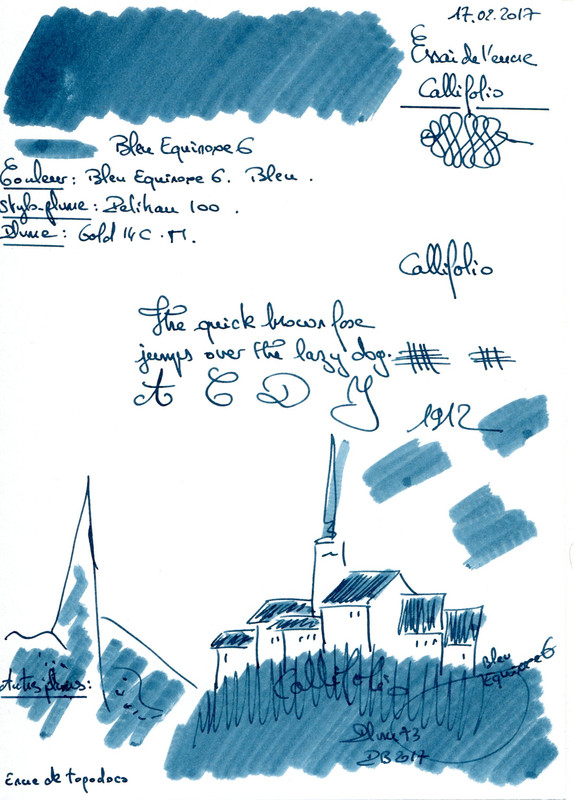 17.02.2017
Essai de l'encre
Callifolio
Bleu Equinoxe 6
Couleur : Bleu Equinoxe 6. Bleu .
Stylo-plume : Pelikan 100 .
Plume : Gold 14C . M.
Callifolio
The quick brown fox
jumps over the lazy dog.
A C D J
1912
Bleu
Equinoxe 6
Autres plumes :
Callifolio
Plume 73
DB 2017
Encre de topodoco